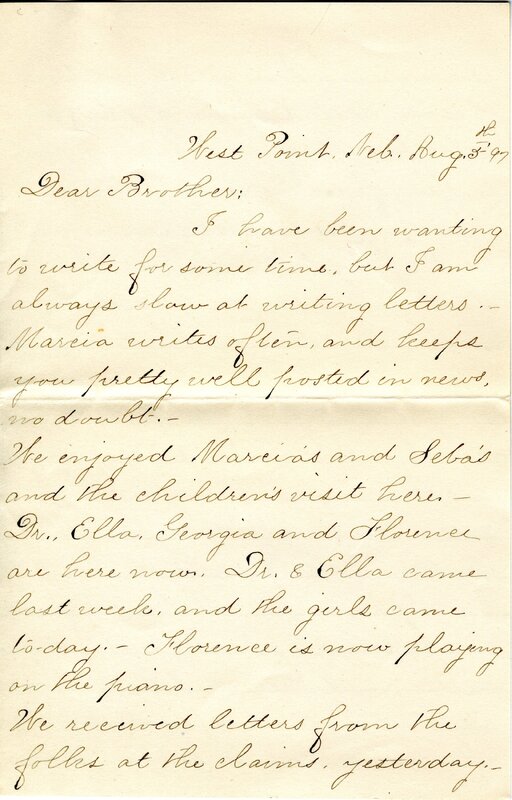 West Point, Neb. Aug. 5th '97
Dear Brother:
I have been wanting
to write for some time, but I am
always slow at writing letters.-
Marcia writes often, and keeps
you pretty well posted in news,
no doubt.-
We enjoyed Marcia's and Seba's
and the children's visit here.-
Dr., Ella, Georgia and Florence
are here now. Dr. & Ella came
last week, and the girls came
to-day.- Florence is now playing
on the piano.-
We received letters from the
folks at the claims, yesterday.-